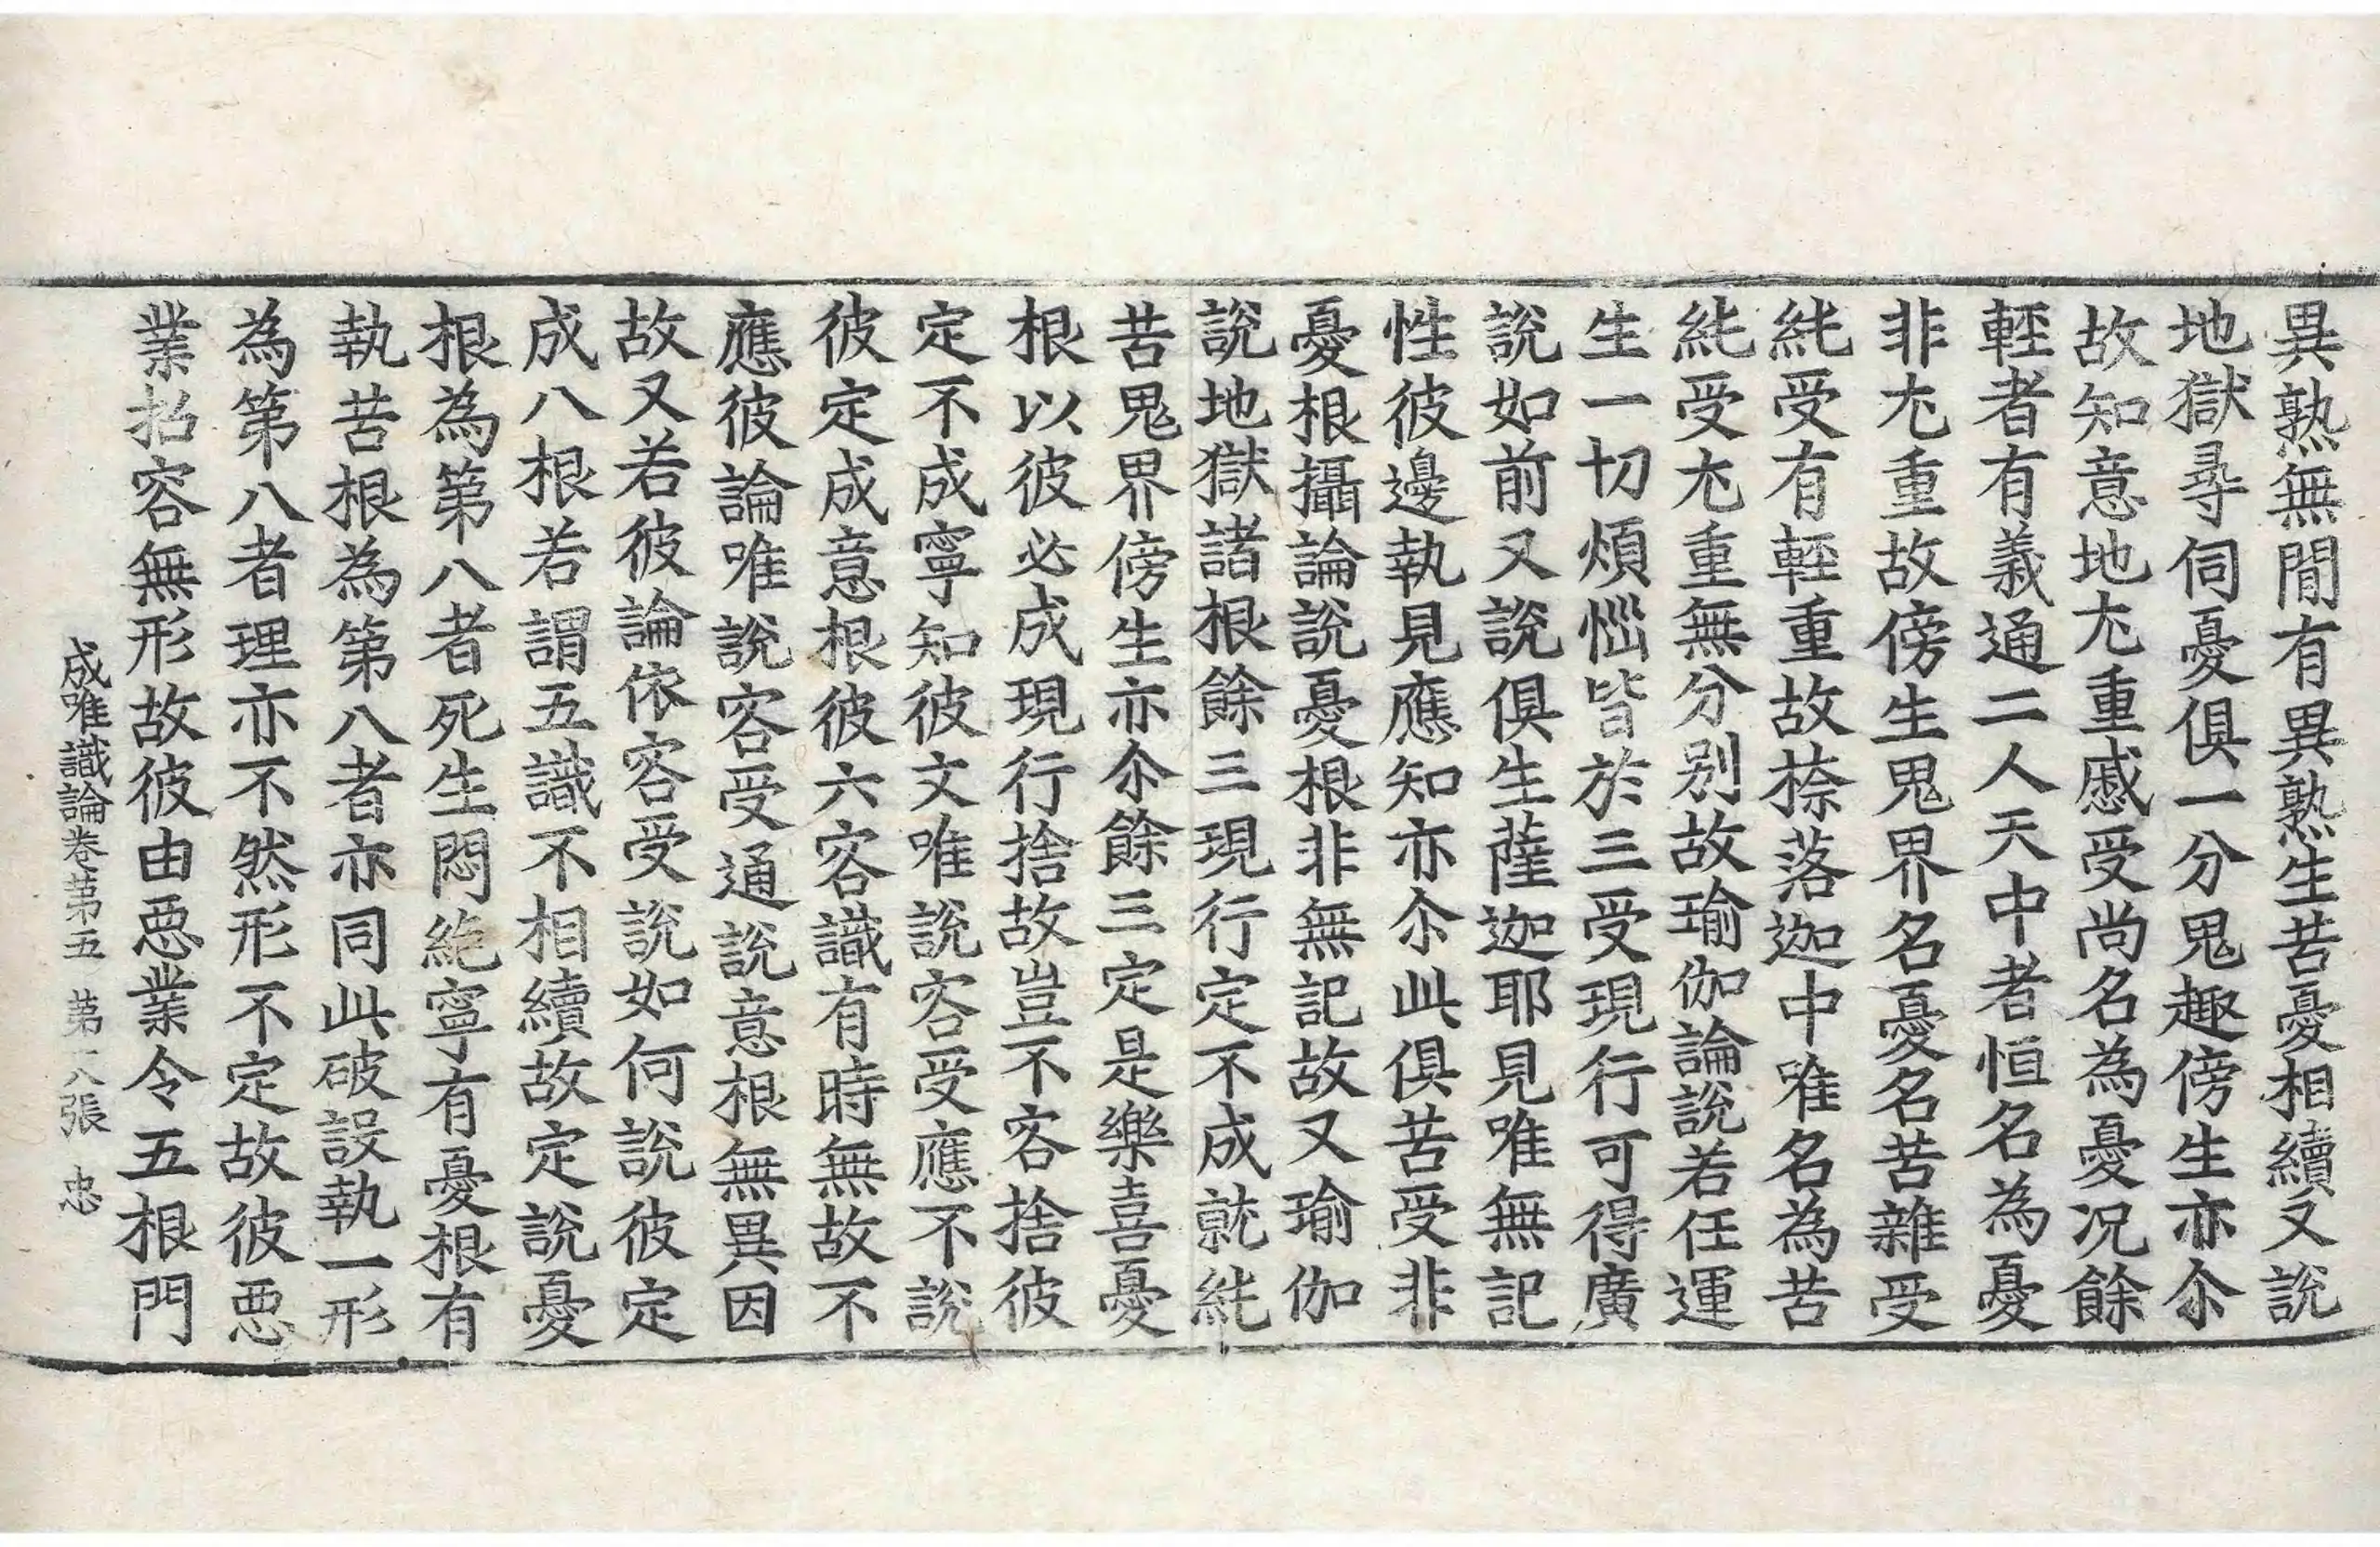 異熟無間有異熟生苦憂相續又說
地獄尋伺憂俱一分鬼趣傍生亦尒
故知意地尤重慼受尚名為憂况餘
輕者有義通二人天中者恒名為憂
非尤重故傍生鬼界名憂名苦雜受
純受有輕重故捺落迦中唯名為苦
純受尤重無分別故瑜伽論說若任運
生一切煩惱皆於三受現行可得廣
說如前又說俱生薩迦耶見唯無記
性彼邊執見應知亦尒此俱苦受非
憂根攝論說憂根非無記故又瑜伽
說地獄諸根餘三現行定不成就純
苦鬼界傍生亦尒餘三定是樂喜憂
根以彼必成現行捨故豈不客捨彼
定不成寧知彼文唯說客受應不說
彼定成意根彼六客識有時無故不
應彼論唯說客受通說意根無異因
故又若彼論依客受說如何說彼定
成八根若謂五識不相續故定說憂
根為第八者死生悶絕寧有憂根有
執苦根為第八者亦同此破設執一形
為第八者理亦不然形不定故彼惡
業招容無形故彼由惡業令五根門
成唯識論卷第五 第八張 忠